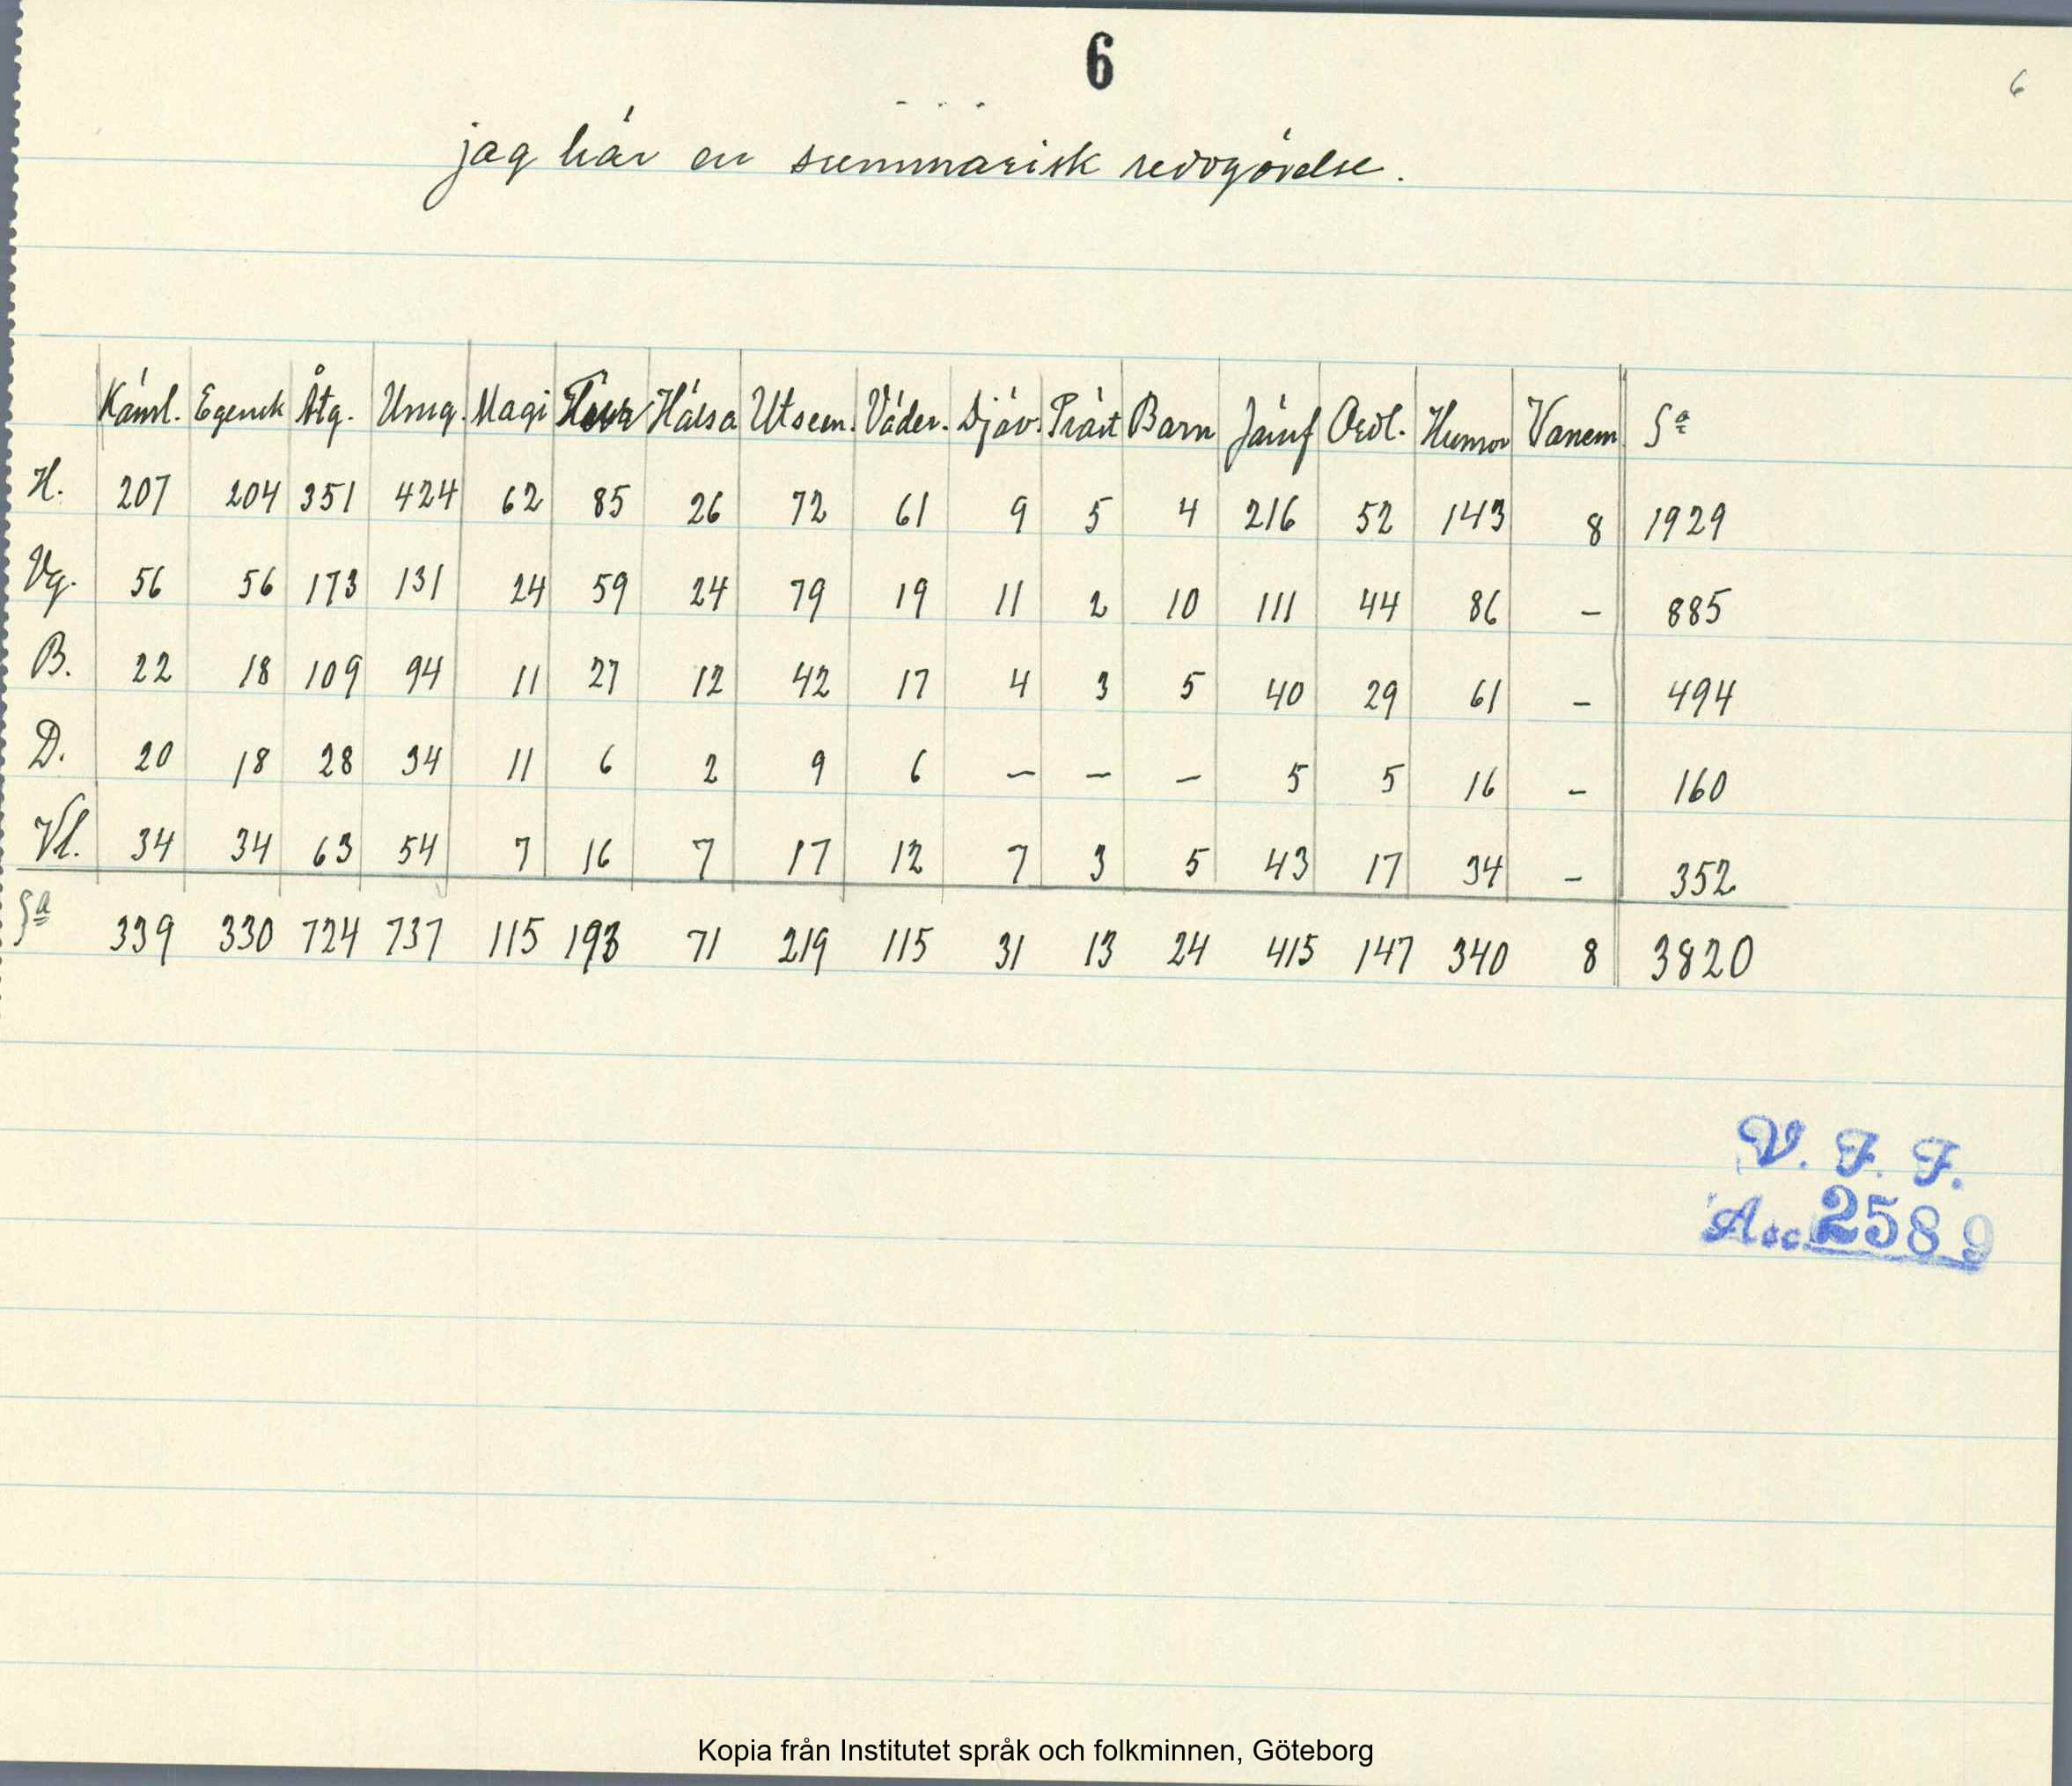 6
6
jag här en summarisk redogörelse.
Känsl. Egensk Åtg. Umg. Magi Hälsa Utseen. Väder. Djäv. Präst Barn Jämf Ordl. Humor Vanem Sa
H. 207 204 351 424 62 85 26 72 61 9 5 4 216 52 143 8 1929
Vg. 56 56 173 131 24 59 24 79 19 11 2 10 111 44 86 – 885
B. 22 18 109 94 11 27 12 42 17 4 3 5 40 29 61 – 494
D. 20 18 28 34 11 6 2 9 6 – – – 5 5 16 – 160
Vl. 34 34 63 54 7 16 7 17 12 7 3 5 43 17 34 – 352
Sa 339 330 724 737 115 193 71 219 115 31 13 24 415 147 340 8 3820
V. F. F.
Acc. 2589
Kopia från Institutet språk och folkminnen, Göteborg